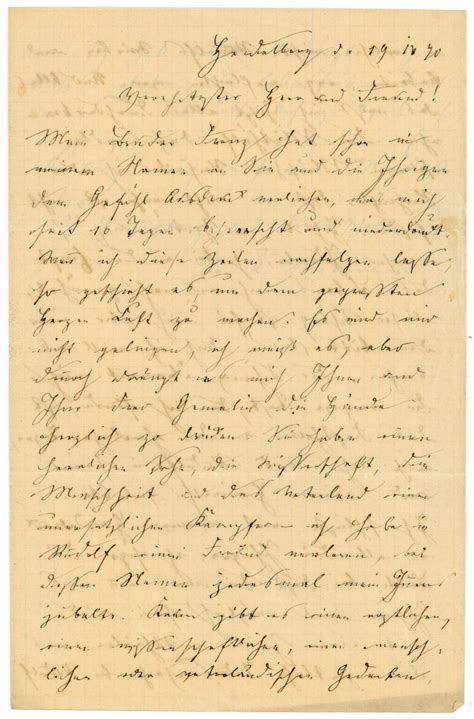 Heidelberg d. 19 IV 70
Verehrtester Herr und Freund!
Mein Bruder Franz hat schon in
meinem Namen an Sie und die Ihrigen
dem Gefühl Ausdruck verliehen, was mich
seit 10 Tagen beherrscht und niederdrückt.
Wenn ich diese Zeilen nachfolgen lasse,
so geschieht es, um dem gepressten
Herzen Luft zu machen. Es wird mir
nicht gelingen, ich weiß es, aber
dennoch drängt es mich Ihnen und
Ihrer Frau Gemalin die Hände
herzlich zu drücken. Sie haben einen
herrlichen Sohn, die Wissenschaft, die
Menschheit und das Vaterland einen
unersetzlichen Kämpfer – ich habe in
Rudolf einen Freund verloren bei
dessen Namen jedesmal mein Inneres
jubelte. Kaum gibt es einen ärztlichen,
einen wissenschaftlichen, einen mensch-
lichen oder vaterländischen Gedanken,